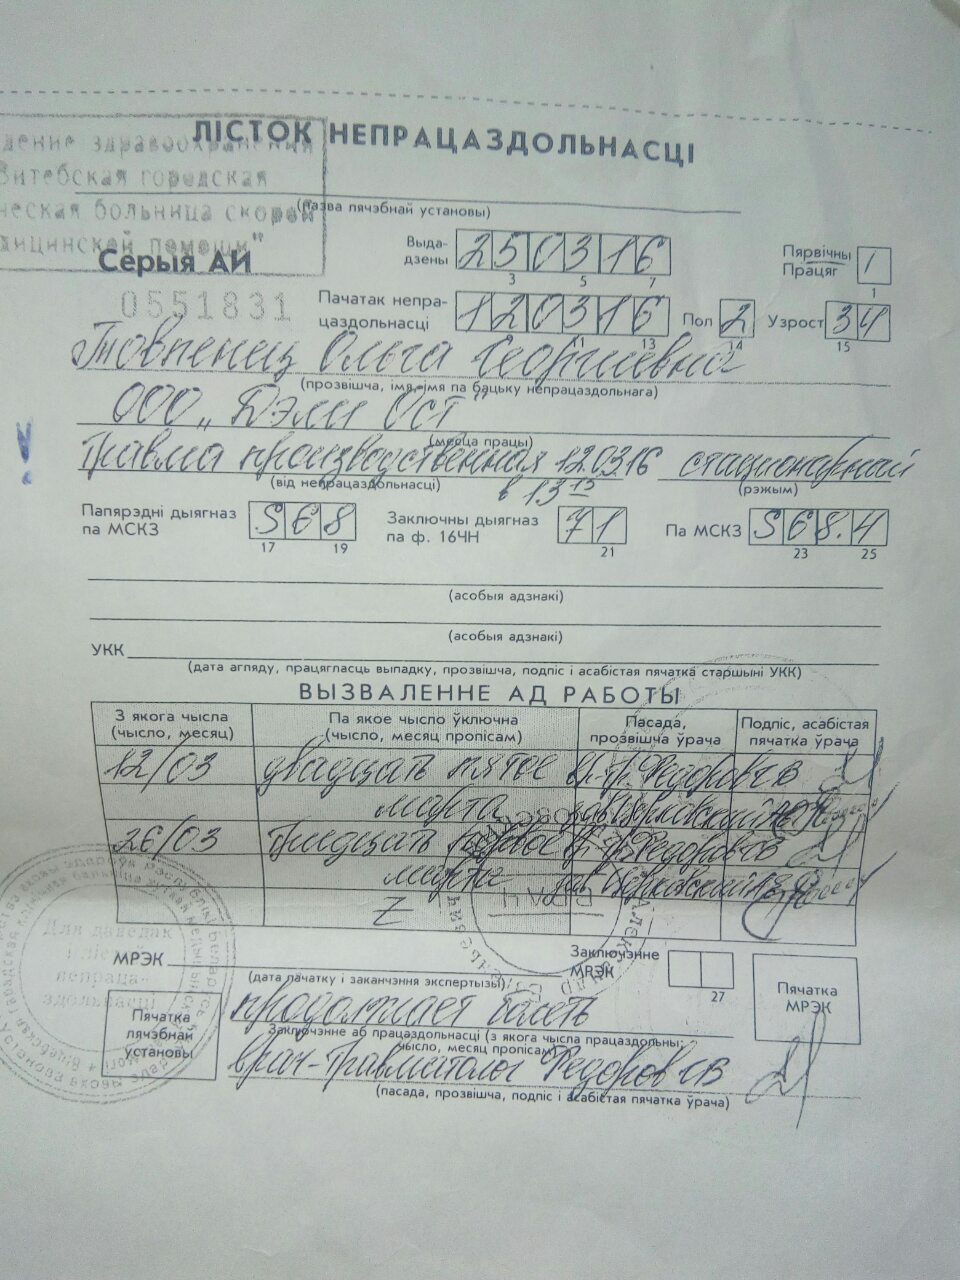 ЛІСТОК НЕПРАЦАЗДОЛЬНАСЦІ
дение здравоохранения
Витебская городская
ческая больница скорой
дицинской помощи"
(назва лячэбнай установы)
Серыя АЙ
0551831
Выда-
дзены
250316
3 5 7
Пярвічны
Працяг
1
1
Пачатак непра-
цаздольнасці
120316
11 13
Пол 2
14
Узрост 34
15
Ольга Георгиевна
(прозвішча, імя, імя па бацьку непрацаздольнага)
ООО „Дэли Ост"
(месца працы)
!
Травма производственная 12.03.16 стационарный
в 13 15
(від непрацаздольнасці)
(рэжым)
Папярэдні дыягназ
па МСКЗ
S68
17 19
Заключны дыягназ
па ф. 16ЧН
71
21
Па МСКЗ S68.4
23 25
(асобыя адзнакі)
(асобыя адзнакі)
УКК
(дата агляду, працягласць выпадку, прозвішча, подпіс і асабістая пячатка старшыні УКК)
ВЫЗВАЛЕННЕ АД РАБОТЫ
З якога чысла
(чысло, месяц)
Па якое чысло ўключна
(чысло, месяц пропісам)
Пасада,
прозвішча ўрача
Подпіс, асабістая
пячатка ўрача
12/03 двадцать пятое вр-тр. Федоров
марта
26/03 тридцать первое Федоров
марта
Z
ВРАЧ
Для даведак
і лісткоў
непраца-
здольнасці
МРЭК
(дата пачатку і заканчэння экспертызы)
Заключэнне
МРЭК
27
Пячатка
МРЭК
Пячатка
лячэбнай
ўстановы
продолжает болеть
Заключэнне аб працаздольнасці (з якога чысла працаздольны;
чысло, месяц пропісам)
врач-травматолог Федоров
(пасада, прозвішча, подпіс і асабістая пячатка ўрача)